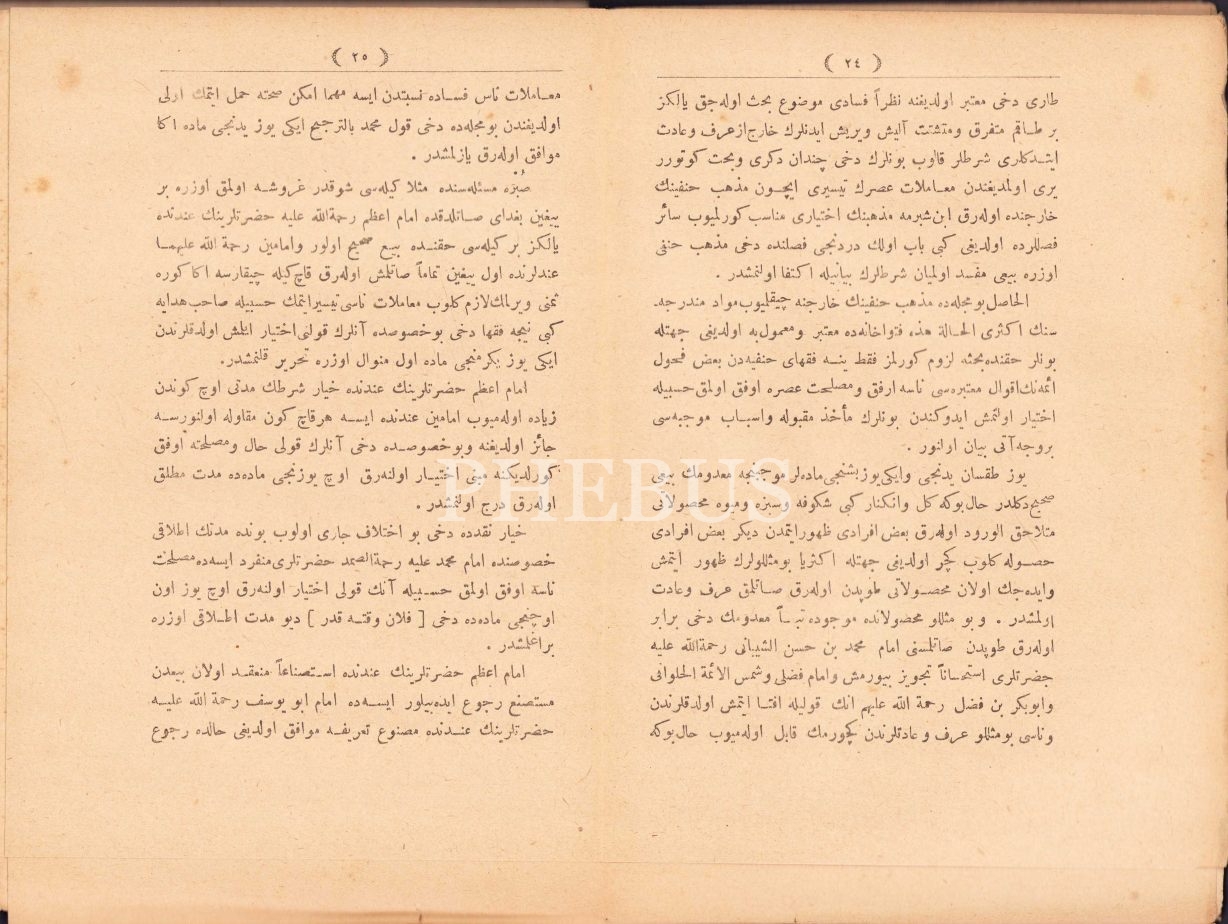 ( ٢٤ )
طاری دخی معتبر اولدیغنه نظراً فسادی موضوع بحث اوله‌جق یالکز
بر طـاقم متفرق و متشتت آلیش ویریش ایدنلرك خارج از عرف و عادت
ایتـدکلری شرطلر قالوب بونلرك دخی چندان دکری و بحث کوتورر
یری اولمدیغندن معـاملات عصرك تیسیری ایچـون مذهب حنفینك
خارجنده اوله‌رق ابن شبرمه مذهبنك اختیاری مناسب کورلمیوب سائر
فصللرده اولدیغی کبی باب اولك دردنجی فصلنده دخی مذهب حنفی
اوزره بیعی مفسد اولمیان شرطلرك بیانیله اکتفا اولنمشدر .
الحاصل بو مجله‌ده مذهب حنفینك خارجنه چیقلیوب مواد مندرجه‌ـ
سنك اکثری الحـالة هذه فتواخانه‌ده معتبر و معمول به اولدیغی جهتله
بونلر حقنده بحثه لزوم کورلمز فقط ینـه فقهای حنفیه‌دن بعض فحول
ائمه‌نك اقوال معتبره‌سی ناسه ارفق و مصلحت عصره اوفق اولمق حسبیله
اختیار اولنمش ایدوکندن بونلرك مأخذ مقبوله و اسباب موجبه‌سی
بروجه آتی بیان اولنور .
یوز طقسان یدنجی و ایکی یوز بشنجی ماده‌لر موجبنجه معدومك بیعی
صحیح دکلدر حال بوکه کل و انکنار کبی شکوفه و سبزه و میوه محصولاتی
متلاحق الورود اوله‌رق بعض افرادی ظهور ایتمدن دیکر بعض افرادی
حصـوله کلوب کچر اولدیغی جهتله اکثریا بو مثللولرك ظهور ایتمش
وایده‌جك اولان محصـولاتی طوپدن اوله‌رق صـاتلمق عرف و عادت
اولمشدر . و بو مثللو محصولاتده موجوده تبـاً معدومك دخی برابر
اوله‌رق طوپدن صاتلمسنی امام محمد بن حسن الشیبانی رحمةالله علیه
حضرتلری استحسـاناً تجویز بیورمش و امام فضلی و شمس الائمة الحلوانی
وابوبکر بن فضل رحمة الله علیهم انك قولیله افتـا ایتمش اولدقلرندن
و ناسی بو مثللو عرف و عادتلرندن کچورمك قابل اوله‌میوب حال بوکه
( ٢٥ )
معـاملات ناس فسـاده نسبتدن ایسه مهما امکن صحته حمل ایتمك اولی
اولدیغندن بو مجله‌ده دخی قول محمد بالترجیح ایکی یوز یدنجی ماده اکا
موافق اوله‌رق یازلمشدر .
صُبْره مسئله‌سنده مثلا کیله‌سی شوقدر غروشـه اولمق اوزره بر
ییغین بغدای صـاتلدقده امام اعظم رحمةالله علیه حضرتلرینك عندنده
یالکز بر کیله‌سی حقنـده بیـع صحیح اولور و امامین رحمة الله علیهمـا
عندلرنده اول ییغین تماماً صاتلمش اوله‌رق قاچ کیله چیقارسه اکا کوره
ثمنی ویرلمك لازم کلوب معاملات ناسی تیسیر ایتمك حسبیله صاحب هدایه
کبی نیجه فقها دخی بو خصوصده آنلرك قولنی اختیار ایتمش اولدقلرندن
ایکی یوز یکرمنجی ماده اول منوال اوزره تحریر قلنمشدر.
امام اعظم حضرتلرینك عندنده خیار شرطك مدتی اوچ کوندن
زیاده اوله‌میوب امامین عندنده ایسـه هر قاچ کون مقاوله اولنورسـه
جائز اولدیغنه و بو خصوصـده دخی آنلرك قولی حال و مصلحته اوفق
کورلدیکنه مبنی اختیـار اولنه‌رق اوچ یوزنجی ماده‌ده مدت مطلق
اوله‌رق درج اولنمشدر .
خیار نقدده دخی بو اختلاف جاری اولوب بونده مدتك اطلاقی
خصوصنده امام محمد علیه رحمةالصمد حضرتلری منفرد ایسه‌ده مصلحت
ناسه اوفق اولمق حسـبیله آنك قولی اختیار اولنه‌رق اوچ یوز اون
اوچنجی ماده‌ده دخی [ فلان وقتـه قدر ] دیو مدت اطـلاقی اوزره
براغلمشدر .
امام اعظم حضرتلرینك عندنده اسـتصناعاً منعقـد اولان بیعدن
مستصنع رجوع ایده‌بیلور ایسـه‌ده امام ابو یوسف رحمة الله علیـه
حضرتلرینك عنـدنده مصنوع تعریفـه موافق اولدیغی حالده رجوع
PHEBUS